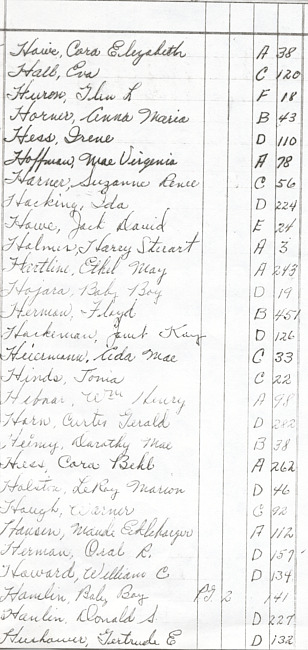 Howe, Cora Elizabeth A 38
Hall, Eva C 120
Huron, Glen L F 18
Horner, Anna Maria B 43
Hess, Irene D 110
Hoffman, Mae Virginia A 78
Harner, Suzanne Renee C 56
Hacking, Ida D 224
Howe, Jack David E 24
Holmes, Harry Stewart A 3
Hertline, Ethel May A 243
Hojara, Baby Boy D 19
Herman, Floyd B 451
Hackeman, Janet Kay D 126
Heiermann, Aida Mae C 33
Hinds, Tonia C 22
Wm Henry A 98
Horn, Curtis Gerald D 282
Dorothy Mae B 38
Hess, Cora Behl A 262
Holston, LeRoy Marion D 46
Hough, Warner C 92
Hansen, Maude A 112
Herman, Oral R. D 157
Howard, William C D 134
Hamlin, Baby Boy Pg 2 141
Hanlin, Donald S. D 227
Gertrude E D 132